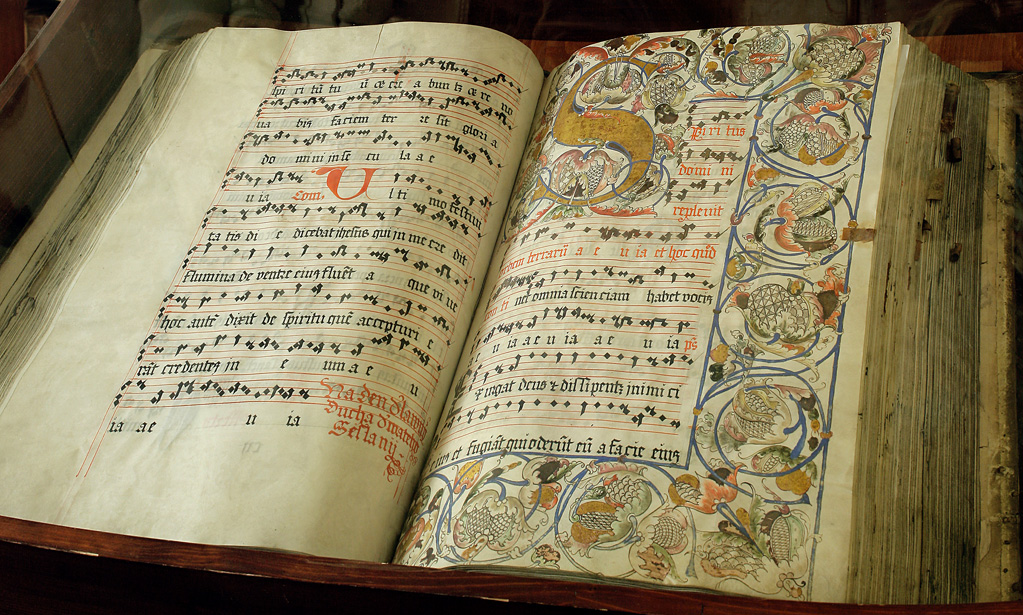 spi ri tū tu u ce rit a bun tz ce re no
ua bis faciem ter ae sit glori a
do mini in se cu la a e
u ia Com. U l ti mo festiui
ta tis di e dicebat ihesus qui in me cre dit
flumina de ventre eius fluēt a que vi ue
hoc autē dixit de spiritu quē accepturi e
rāt credentes in e um a e u
ia a e u ia
Na den
Ducha
Seslanij
S pi ri tus
domi ni
repleuit
orbem terrarū a e u ia et hoc quod
con ti net omnia scien ciam habet vocis
u ia a e u ia a e u ia ps
Exurgat deus et dissipentz inimi ci
eius et fugiāt qui oderūt eū a facie eius